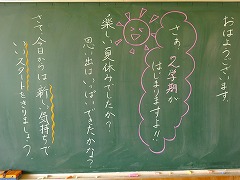 おはようございます。
さぁ 2学期が
はじまりますよ!!
楽しい夏休みでしたか?
思い出はいっぱいできたかな?
さて今日からは新しい気持ちで
いいスタートをきりましょう。